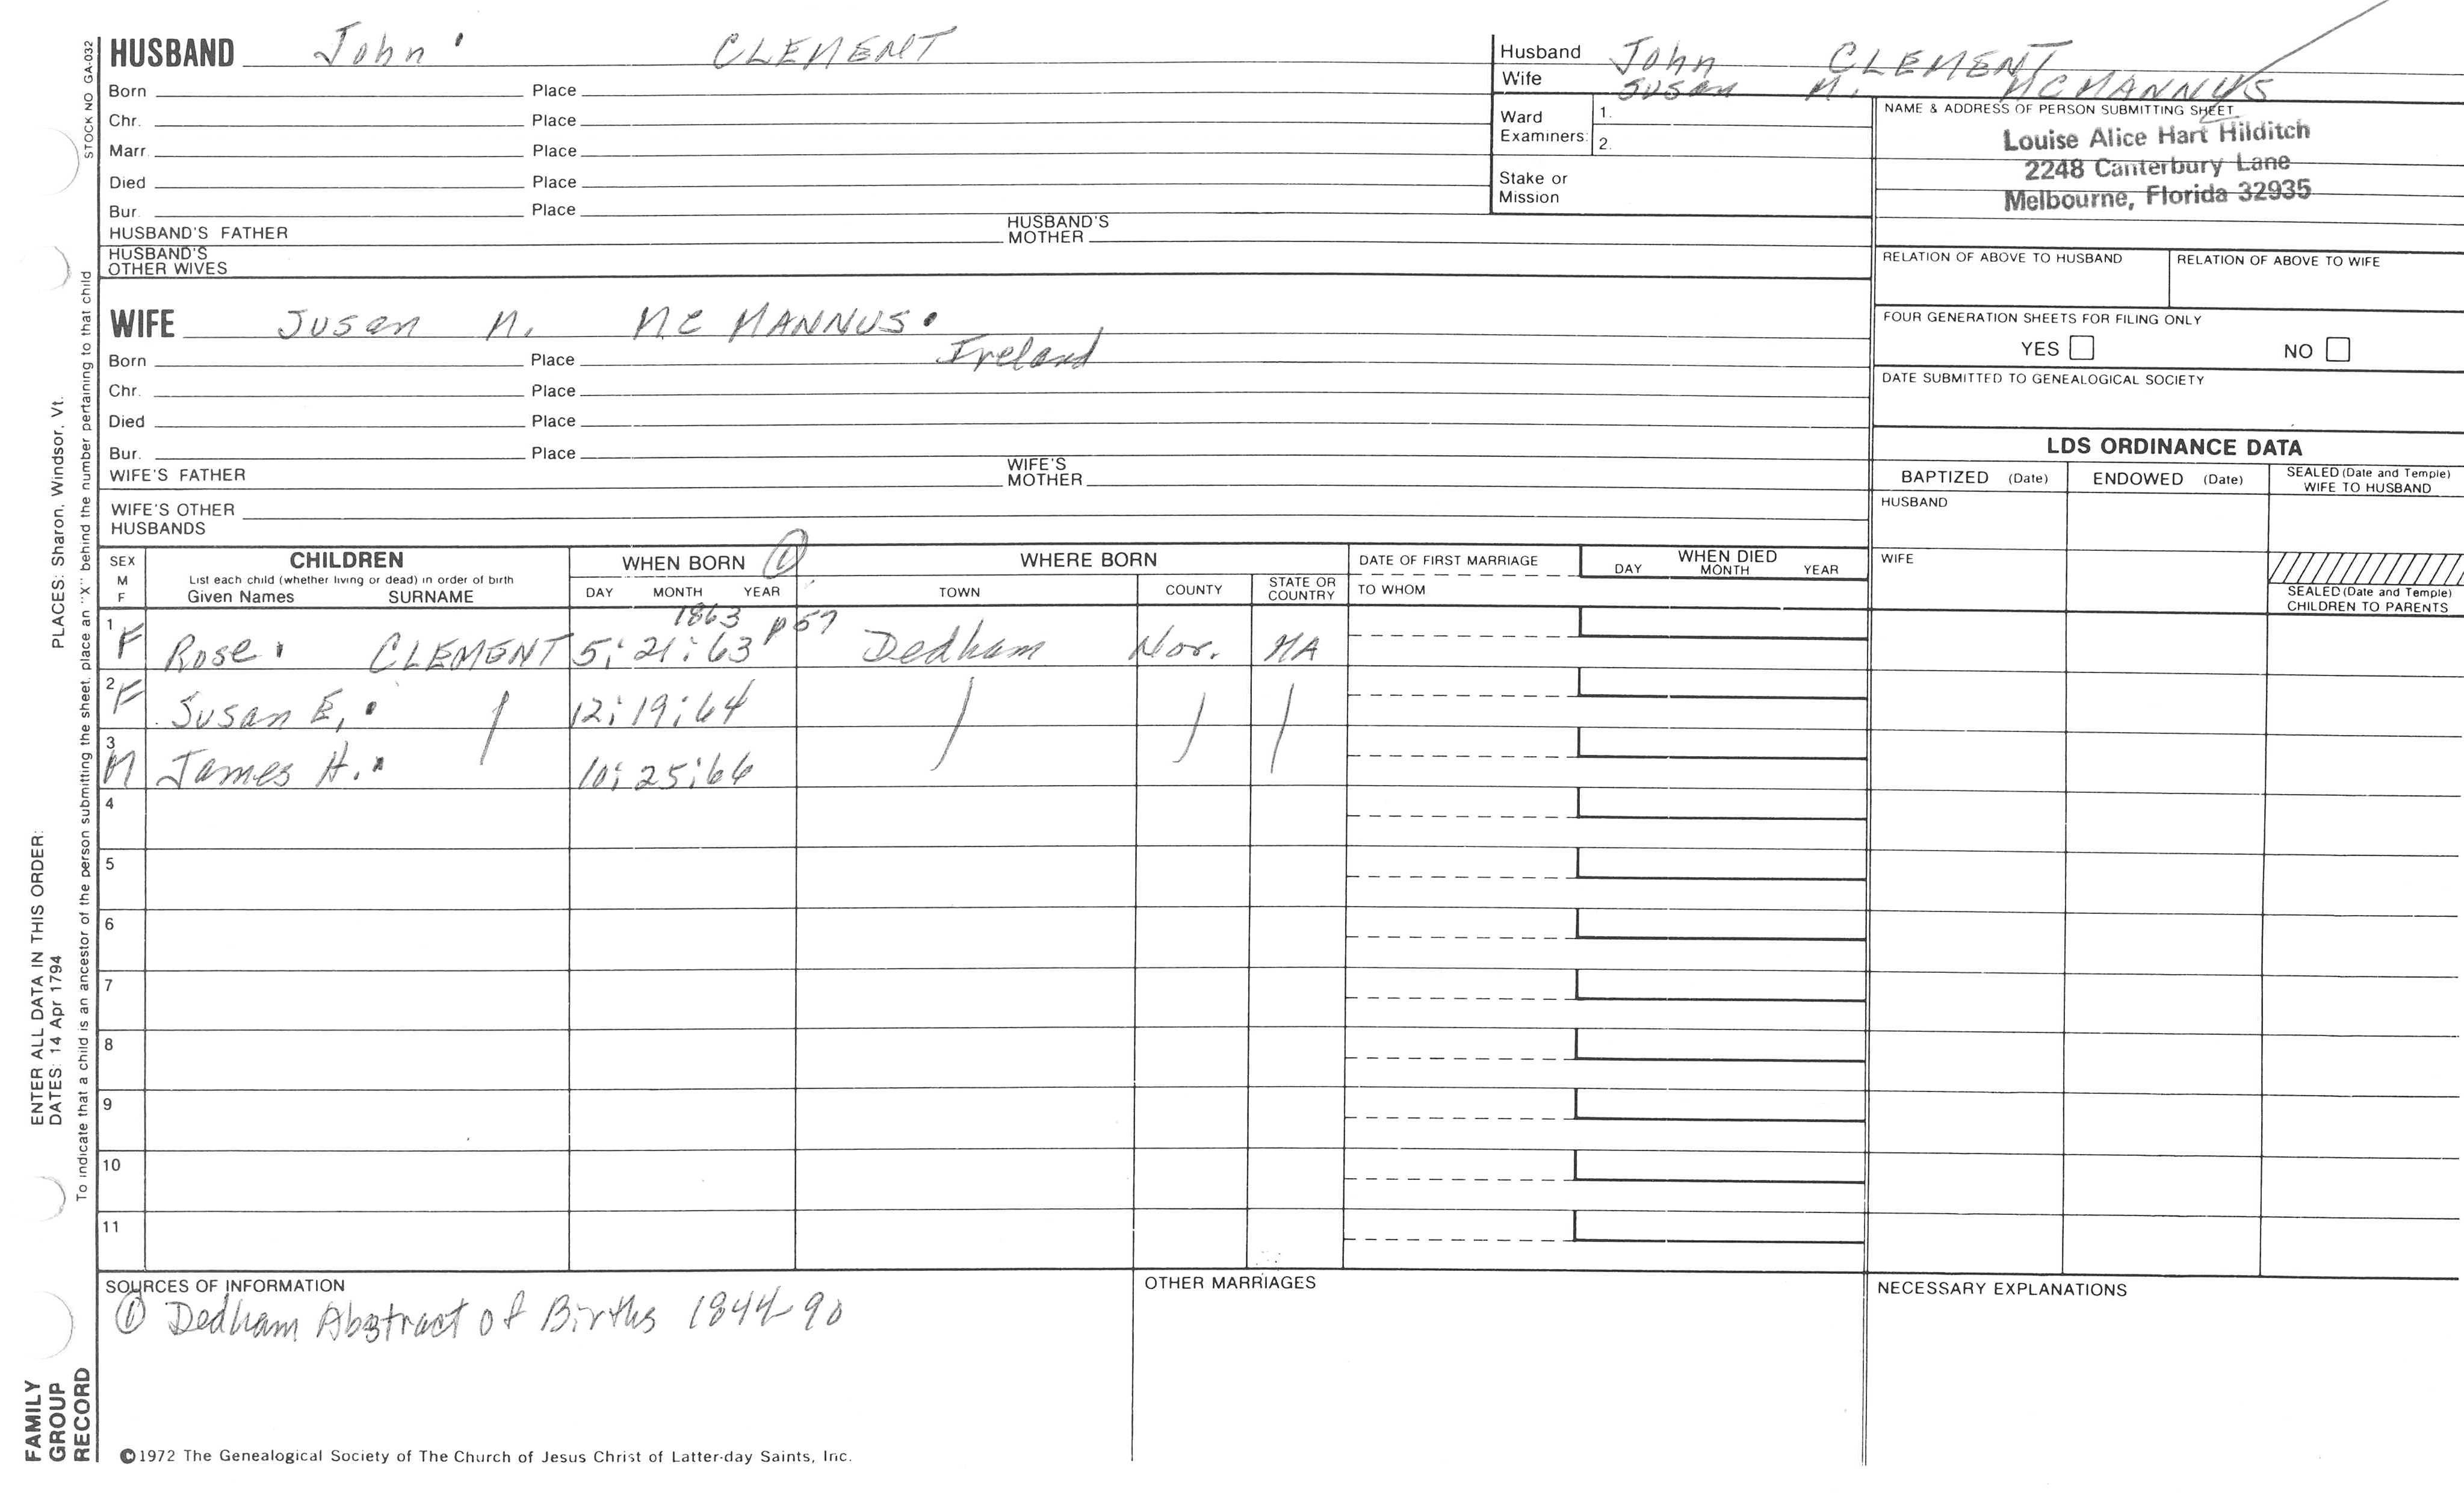 HUSBAND John CLEMENT
Born Place
Chr. Place
Marr. Place
Died Place
Bur. Place
HUSBAND'S FATHER HUSBAND'S MOTHER
HUSBAND'S OTHER WIVES
WIFE Susan M. MC MANNUS
Born Place Ireland
Chr. Place
Died Place
Bur. Place
WIFE'S FATHER WIFE'S MOTHER
WIFE'S OTHER HUSBANDS
Husband John CLEMENT
Wife Susan M. MC MANNUS
Ward Examiners: 1.
2.
Stake or Mission
NAME & ADDRESS OF PERSON SUBMITTING SHEET
Louise Alice Hart Hilditch
2248 Canterbury Lane
Melbourne, Florida 32935
RELATION OF ABOVE TO HUSBAND RELATION OF ABOVE TO WIFE
FOUR GENERATION SHEETS FOR FILING ONLY
YES NO
DATE SUBMITTED TO GENEALOGICAL SOCIETY
LDS ORDINANCE DATA
BAPTIZED (Date) ENDOWED (Date) SEALED (Date and Temple) WIFE TO HUSBAND
HUSBAND
WIFE
SEALED (Date and Temple) CHILDREN TO PARENTS
SEX M F
CHILDREN
List each child (whether living or dead) in order of birth
Given Names SURNAME
WHEN BORN ①
DAY MONTH YEAR
WHERE BORN
TOWN COUNTY STATE OR COUNTRY
DATE OF FIRST MARRIAGE
TO WHOM
WHEN DIED
DAY MONTH YEAR
1863 p 57
1 F Rose CLEMENT 5:21:63 Dedham Nor. MA
2 F Susan E. 12:19:64
3 M James H. 10:25:66
4
5
6
7
8
9
10
11
SOURCES OF INFORMATION
① Dedham Abstract of Births 1844-90
OTHER MARRIAGES
NECESSARY EXPLANATIONS
©1972 The Genealogical Society of The Church of Jesus Christ of Latter-day Saints, Inc.
STOCK NO GA-032
To indicate that a child is an ancestor of the person submitting the sheet, place an "X" behind the number pertaining to that child
PLACES: Sharon, Windsor, Vt.
ENTER ALL DATA IN THIS ORDER:
DATES: 14 Apr 1794
FAMILY
GROUP
RECORD